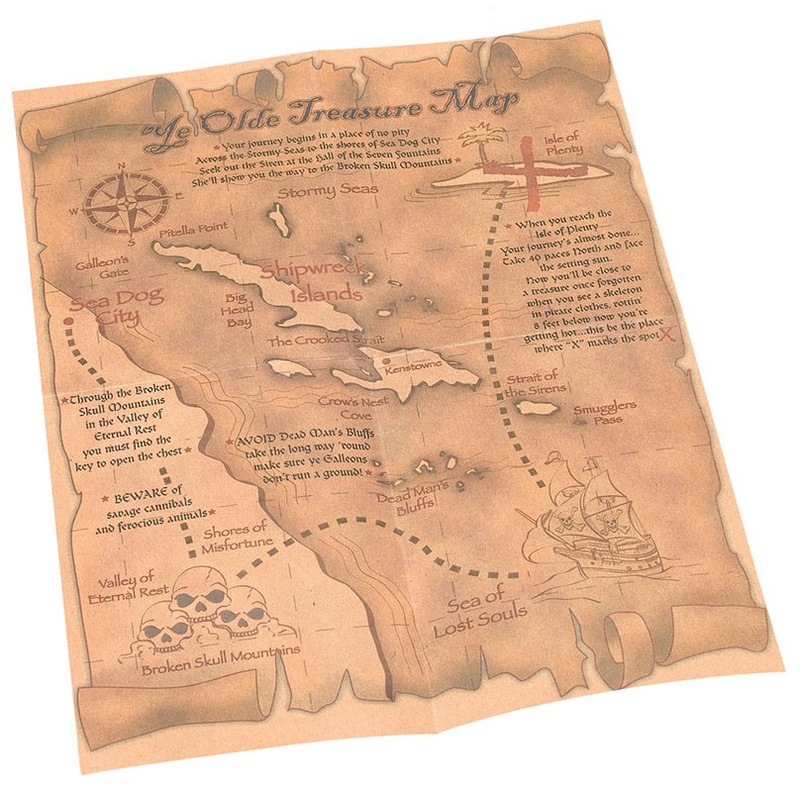 Ye Olde Treasure Map
★Your journey begins in a place of no pity
Across the Stormy Seas to the shores of Sea Dog City
Seek out the Siren at the Hall of the Seven Fountains
She'll show you the way to the Broken Skull Mountains★
Isle of
Plenty
N
W E
S
Stormy Seas
Pitella Point
★ When you reach the
Isle of Plenty
Your journey's almost done...
Take 40 paces North and face
the setting sun.
Now you'll be close to
a treasure once forgotten
when you see a skeleton
in pirate clothes, rottin'
8 feet below now you're
getting hot...this be the place
where "X" marks the spot X
Galleon's
Gate
Shipwreck
Islands
Sea Dog
City
Big
Head
Bay
The Crooked Strait
Kenstowne
Crow's Nest
Cove
Strait of
the Sirens
Smugglers
Pass
★Through the Broken
Skull Mountains
in the Valley of
Eternal Rest
you must find the
key to open the chest★
★AVOID Dead Man's Bluffs
take the long way 'round
make sure ye Galleons
don't run a ground!★
Dead Man's
Bluffs
★ BEWARE of
savage cannibals
and ferocious animals★
Shores of
Misfortune
Valley of
Eternal Rest
Sea of
Lost Souls
Broken Skull Mountains